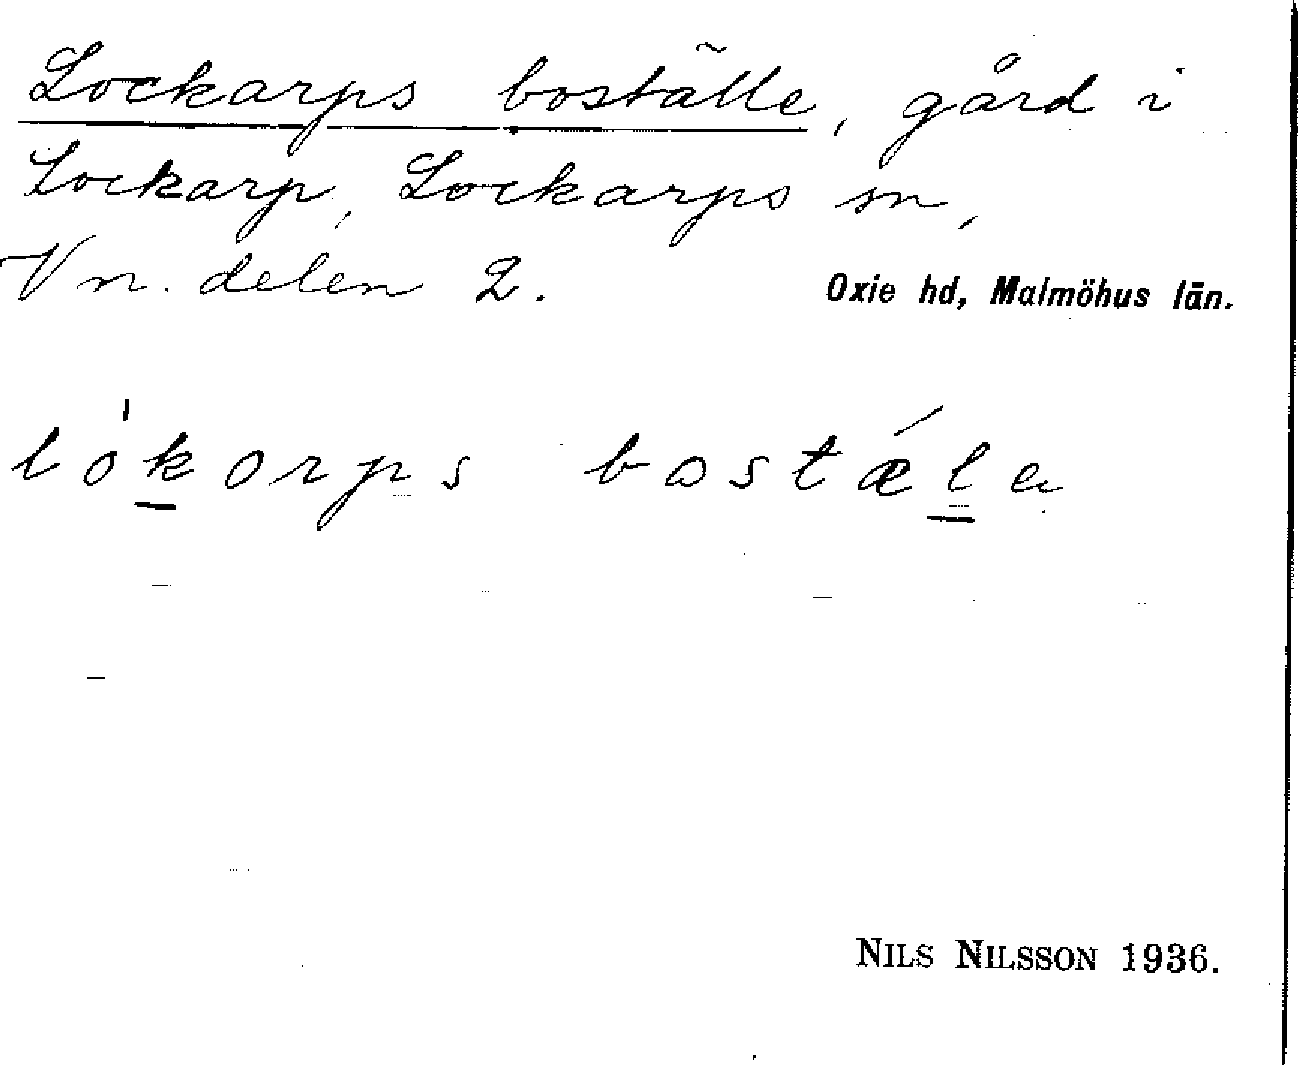 Lockarps boställe, gård i
Lockarp, Lockarps sn,
Vn. delen 2. Oxie hd, Malmöhus län.
lókorps bostǽla
NILS NILSSON 1936.